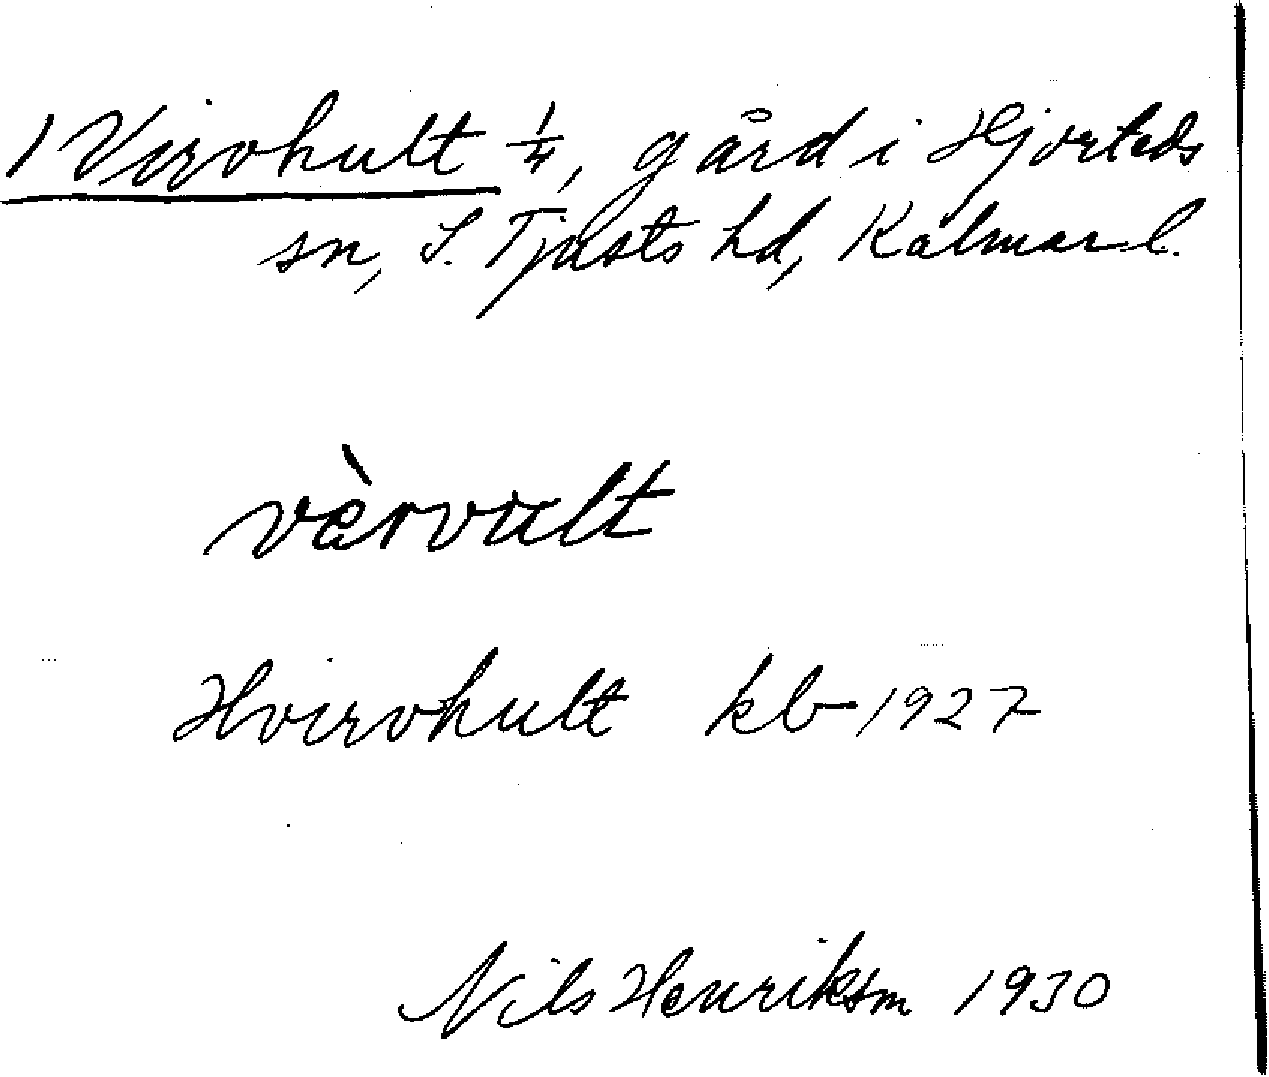 1 Virvhult 1/4, gård i Hjorteds
sn, S. Tjusts hd, Kalmar l.
vèrvult
Hvirvhult kb 1927
Nils Henriksm 1930